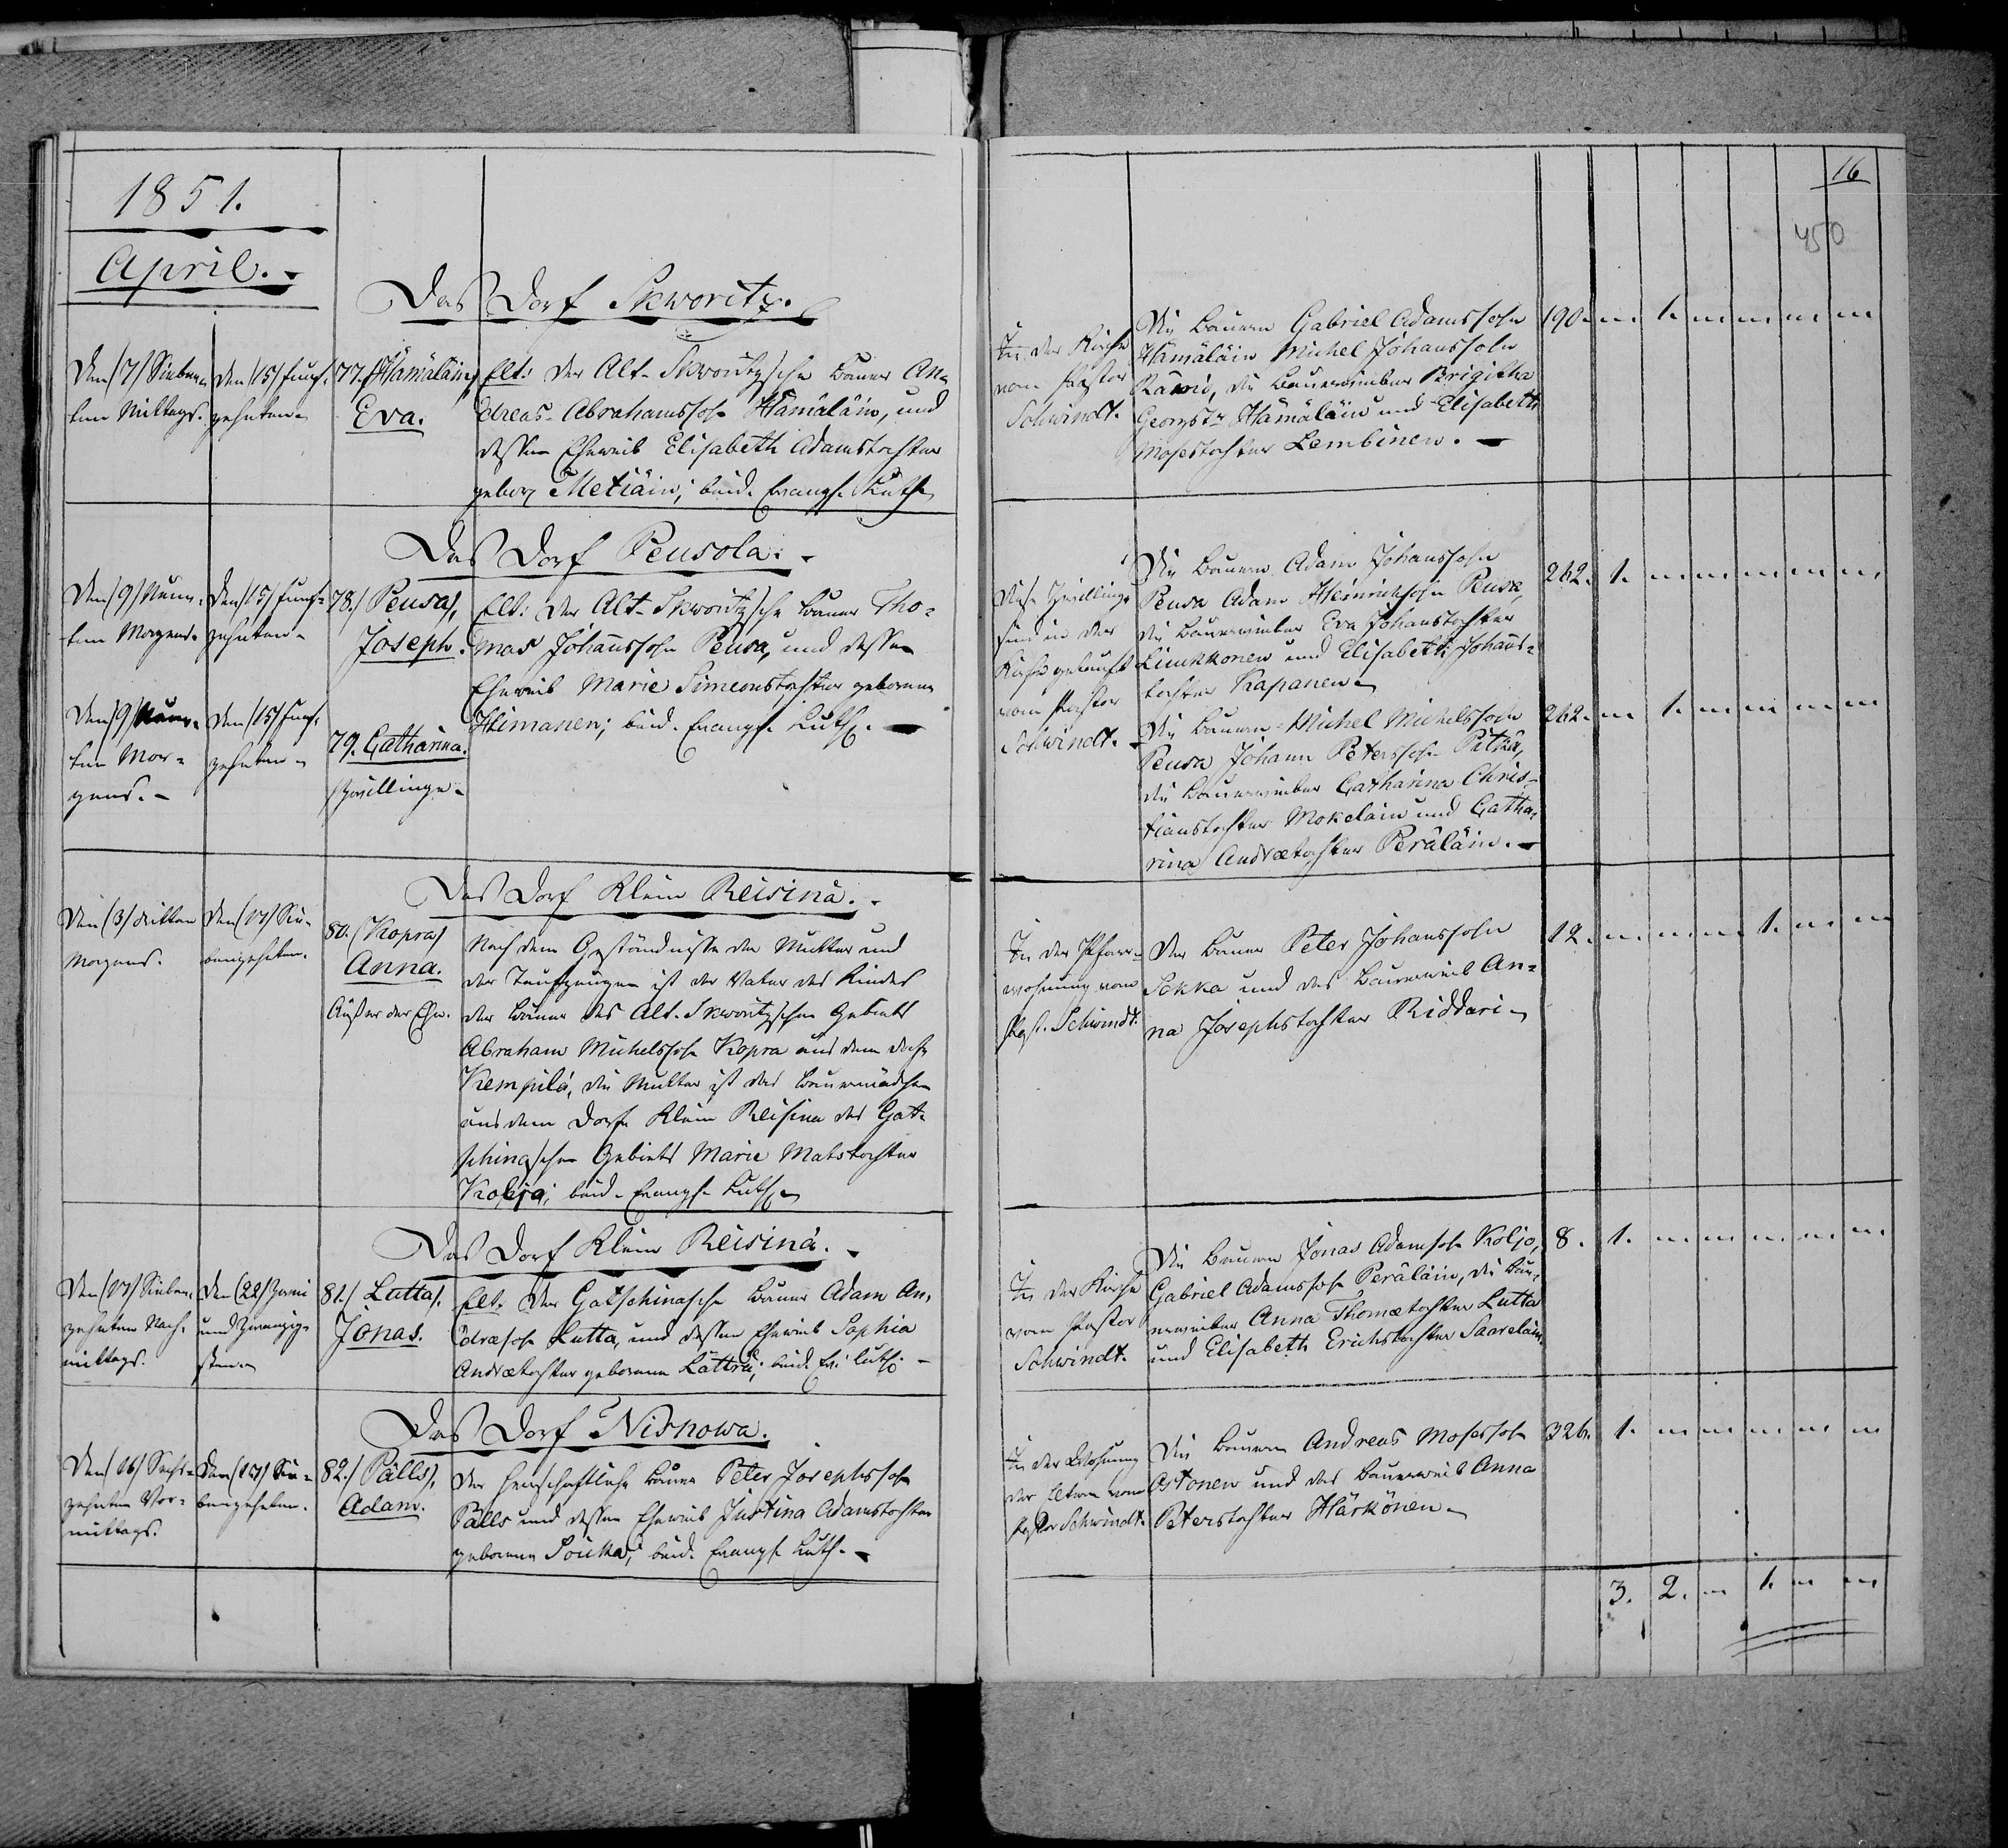 1851.
April.
Das Dorf Skworitz.
Den (7) Sieben-
ten Mittags.
Den (15) funf-
zehnten
77. (Hämäläin)
Eva.
Elt: der Alt-Skworitzsche Bauer An-
dreas Abrahamssohn Hämäläin, und
dessen Eheweib Elisabeth Adamstochter
gebor Metiäin; beid. Evangs. Luth.
Das Dorf Peusola.
Den (9) Neun-
ten Morgens.
Den (15) funf-
zehnten
78. (Peusa),
Joseph.
Elt: der Alt-Skworitzsche Bauer Tho-
mas Johanssohn Peusa, und dessen
Eheweib Marie Simeonstochter geborene
Hlimanen; beid. Evangs. Luth.
Den (9) Neun-
ten Mor-
gens.
Den (15) funf-
zehnten
79. Catharina.
Zwillinge
Das Dorf Klein Reisina.
Den (3) dritten
Morgens.
Den (17) Sie-
benzehnten.
80. (Kopra)
Anna.
Außer der Ehe.
Nach dem Geständnisse der Mutter und
der Taufzeugen ist der Vater des Kindes
der Bauer des Alt-Skworitzschen Gebiets
Abraham Michelssohn Kopra aus dem Dorfe
Kempilä, die Mutter ist das Bauermädchen
aus dem Dorfe Klein Reisina des Gat-
schinaschen Gebiets Marie Matstochter
Kolja; beid. Evangs. Luth.
Das Dorf Klein Reisinä.
Den (17) Sieben-
zehnten Nach-
mittags.
Den (22) Zwei
und Zwanzig-
sten
81. (Lutta).
Jonas.
Elt. der Gatschinasche Bauer Adam An-
dræsohn Lutta, und dessen Eheweib Sophia
Andrætochter geborene Lätträ; beid. Ev. luth.
Das Dorf Nisnowa.
Den (16) Sechs-
zehnten Vor-
mittags.
Den (17) Sie-
benzehnten.
82. (Pälls),
Adam.
Der herrschaftliche Bauer Peter Josephssohn
Pälls und dessen Eheweib Justina Adamstochter
geborene Souka; beid. Evangs. Luth.
16
450
In der Kirche
vom Pastor
Schwindt.
Die Bauern Gabriel Adamssohn
Hämäläin Michel Johanssohn
Räwi, die Bauerweiber Brigitha
Georgst. Hämäläin und Elisabeth
Mosestochter Lembinen.
190. 1.
Diese Zwillinge
sind in der
Kirche getauft
vom Pastor
Schwindt.
Die Bauern Adam Johanssohn
Peusa Adam Heinrichssohn Peusa,
die Bauerweiber Eva Johanstochter
Liukkonen und Elisabeth Johans-
tochter Kapanen
262. 1.
Die Bauern Michel Michelssohn
Peusa Johann Peterssohn Pitkä,
die Bauerweiber Catharina Chris-
tianstochter Mokeläin und Catha-
rina Andrætochter Peräläin.
262. 1.
In der Pfarr-
wohnung vom
Past. Schwindt.
Der Bauer Peter Johanssohn
Sokka und das Bauerweib An-
na Josephstochter Riddari
12. 1.
In der Kirche
vom Pastor
Schwindt.
Die Bauern Jonas Adamssohn Koljo,
Gabriel Adamssohn Peräläin, die Bau-
erweiber Anna Thomætochter Lutta
und Elisabeth Erichstochter Saareläin.
8. 1.
In der Wohnung
der Eltern vom
Pastor Schwindt.
Die Bauern Andreas Mosessohn
Ostonen und das Bauerweib Anna
Peterstochter Härkönen
326. 1.
3. 2. 1.